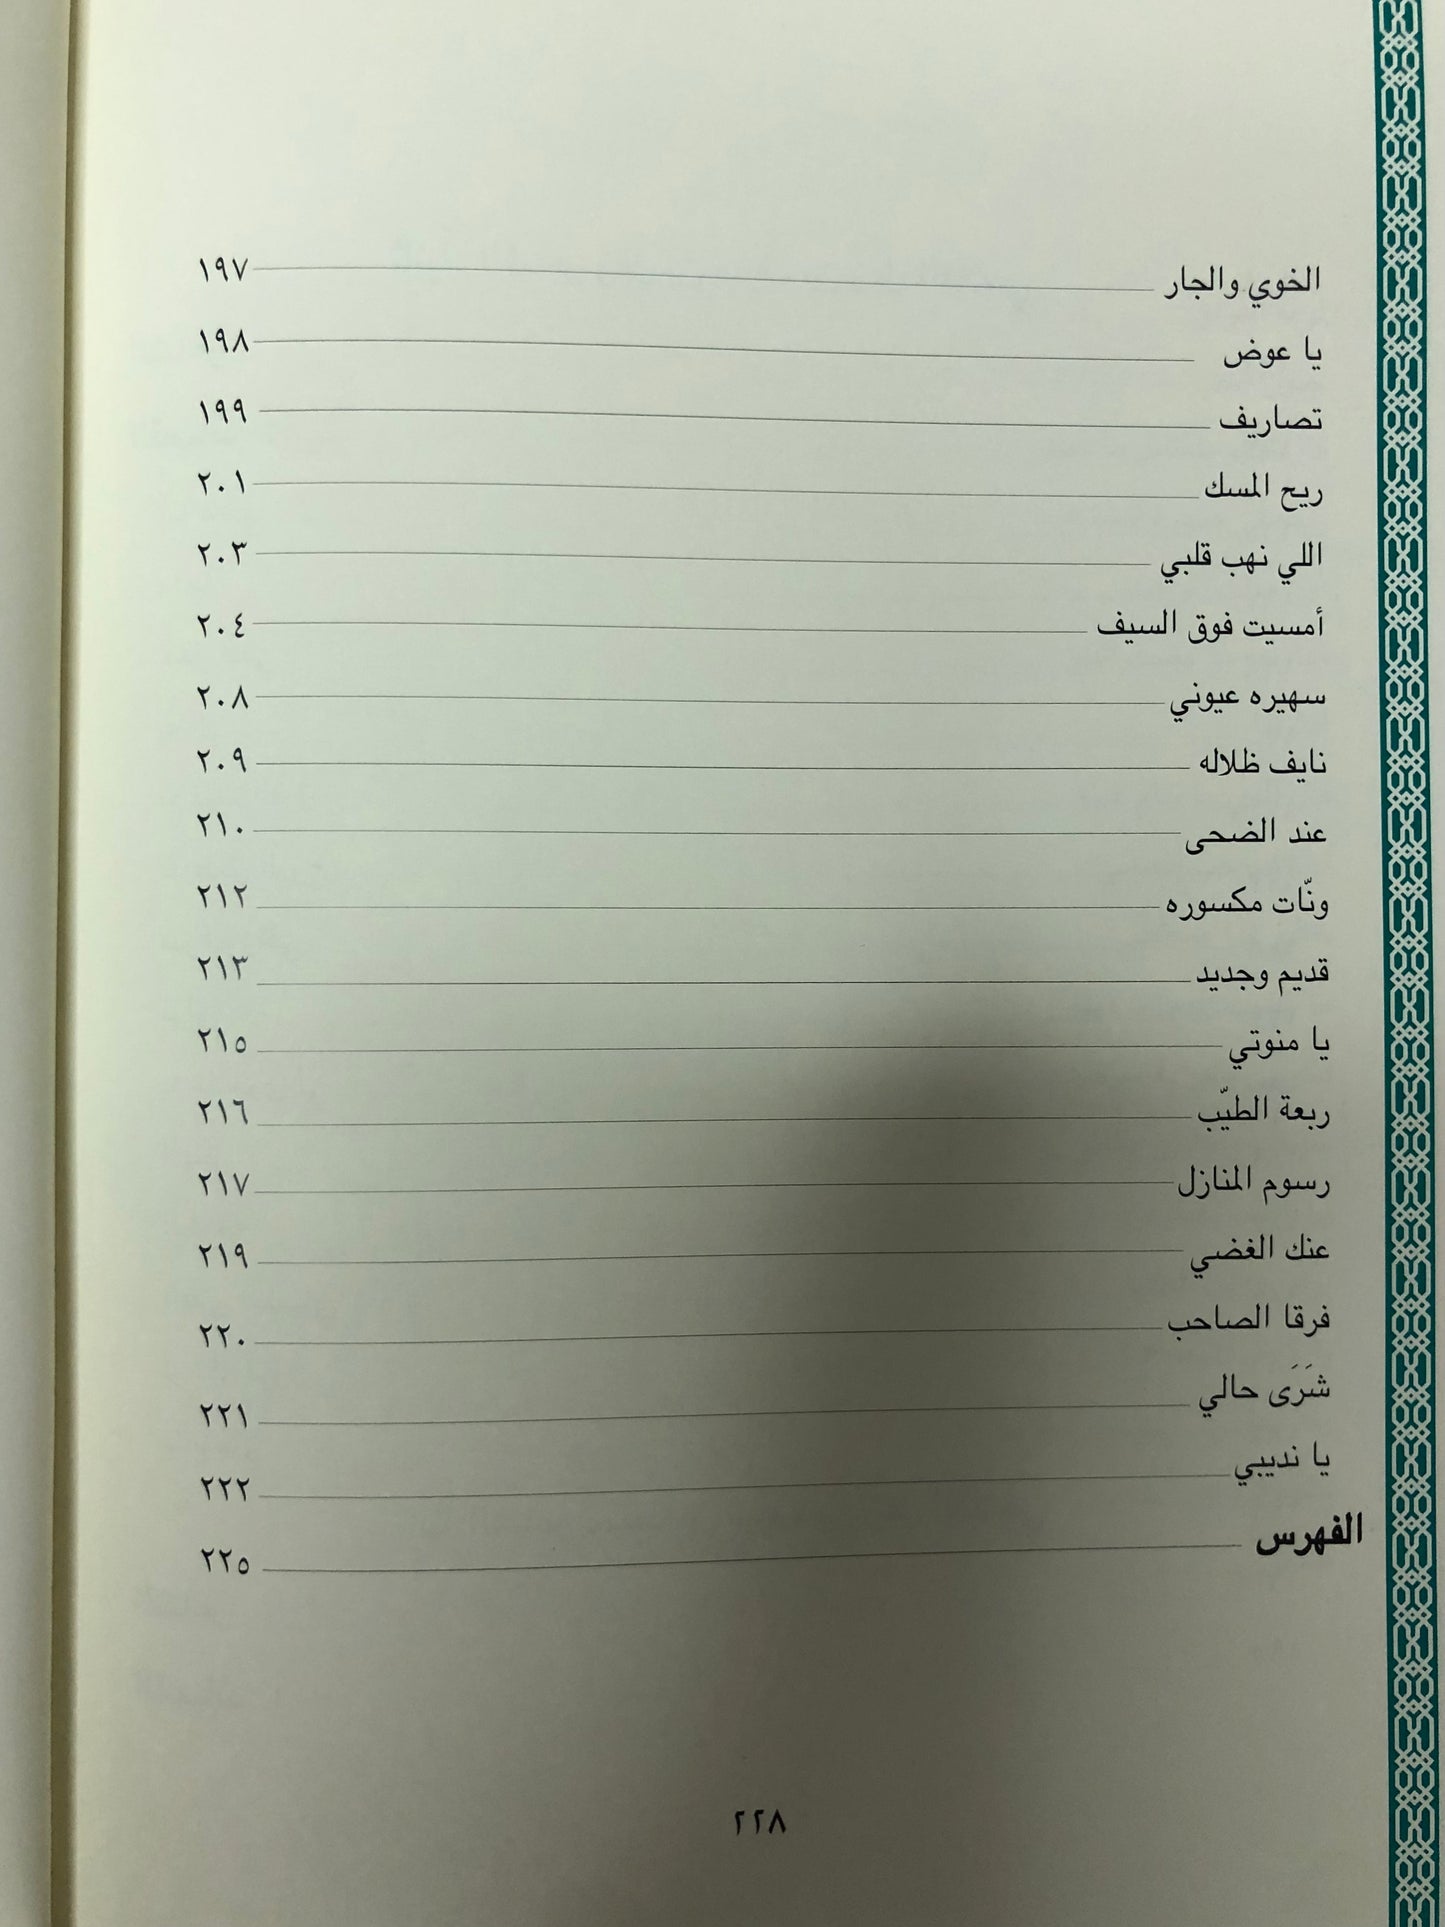 الخوي والجار ١٩٧
يا عوض ١٩٨
تصاريف ١٩٩
ريح المسك ٢٠١
اللي نهب قلبي ٢٠٣
أمسيت فوق السيف ٢٠٤
سهيره عيوني ٢٠٨
نايف ظلاله ٢٠٩
عند الضحى ٢١٠
ونّات مكسوره ٢١٢
قديم وجديد ٢١٣
يا منوتي ٢١٥
ربعة الطيّب ٢١٦
رسوم المنازل ٢١٧
عنك الغضي ٢١٩
فرقا الصاحب ٢٢٠
شَرَى حالي ٢٢١
يا نديبي ٢٢٢
الفهرس ٢٢٥
٢٢٨